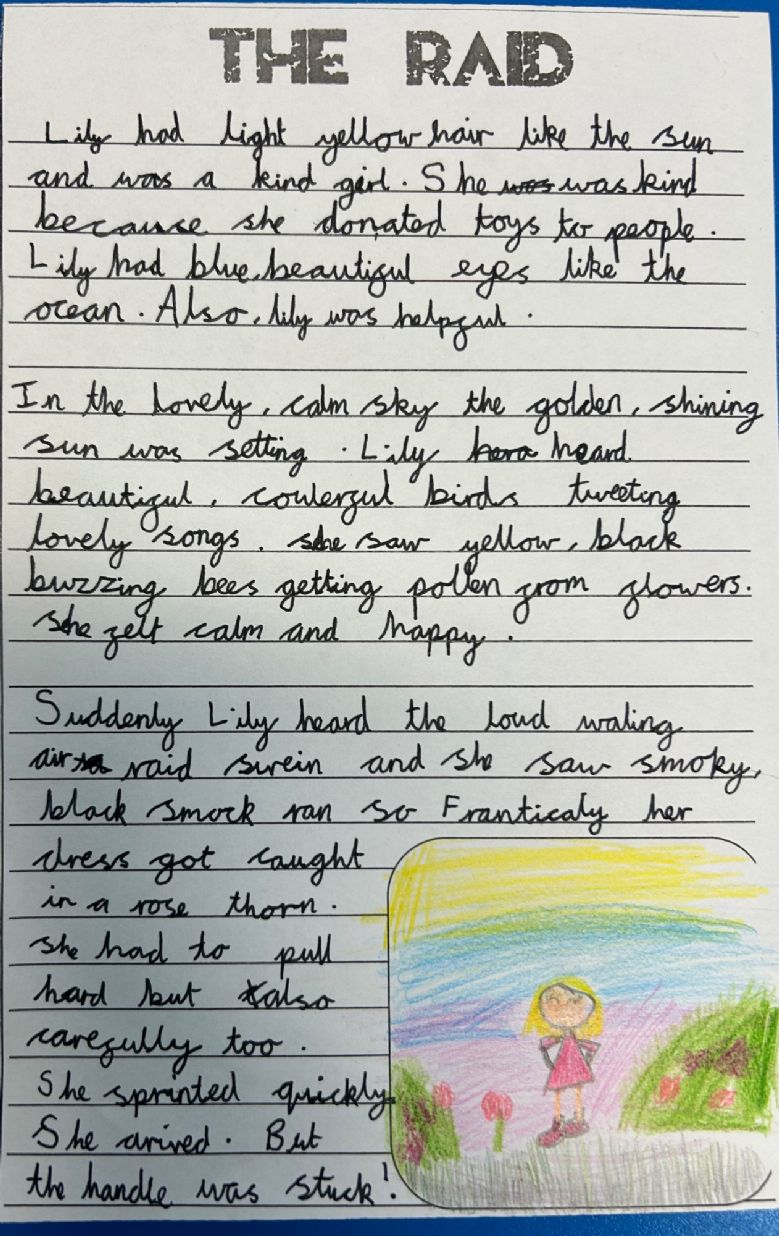 THE RAID
Lily had light yellow hair like the sun
and was a kind girl. She was was kind
because she donated toys to people.
Lily had blue, beautiful eyes like the
ocean. Also, lily was helpful.
In the lovely, calm sky the golden, shining
sun was setting. Lily heard
beautiful, coulerful birds tweeting
lovely songs. she saw yellow, black
buzzing bees getting pollen from flowers.
She felt calm and happy.
Suddenly Lily heard the loud waling
air raid swrein and she saw smoky,
black smock ran so Franticaly her
dress got caught
in a rose thorn.
she had to pull
hard but also
carefully too.
She sprinted quickly
She arived. But
the handle was stuck!.